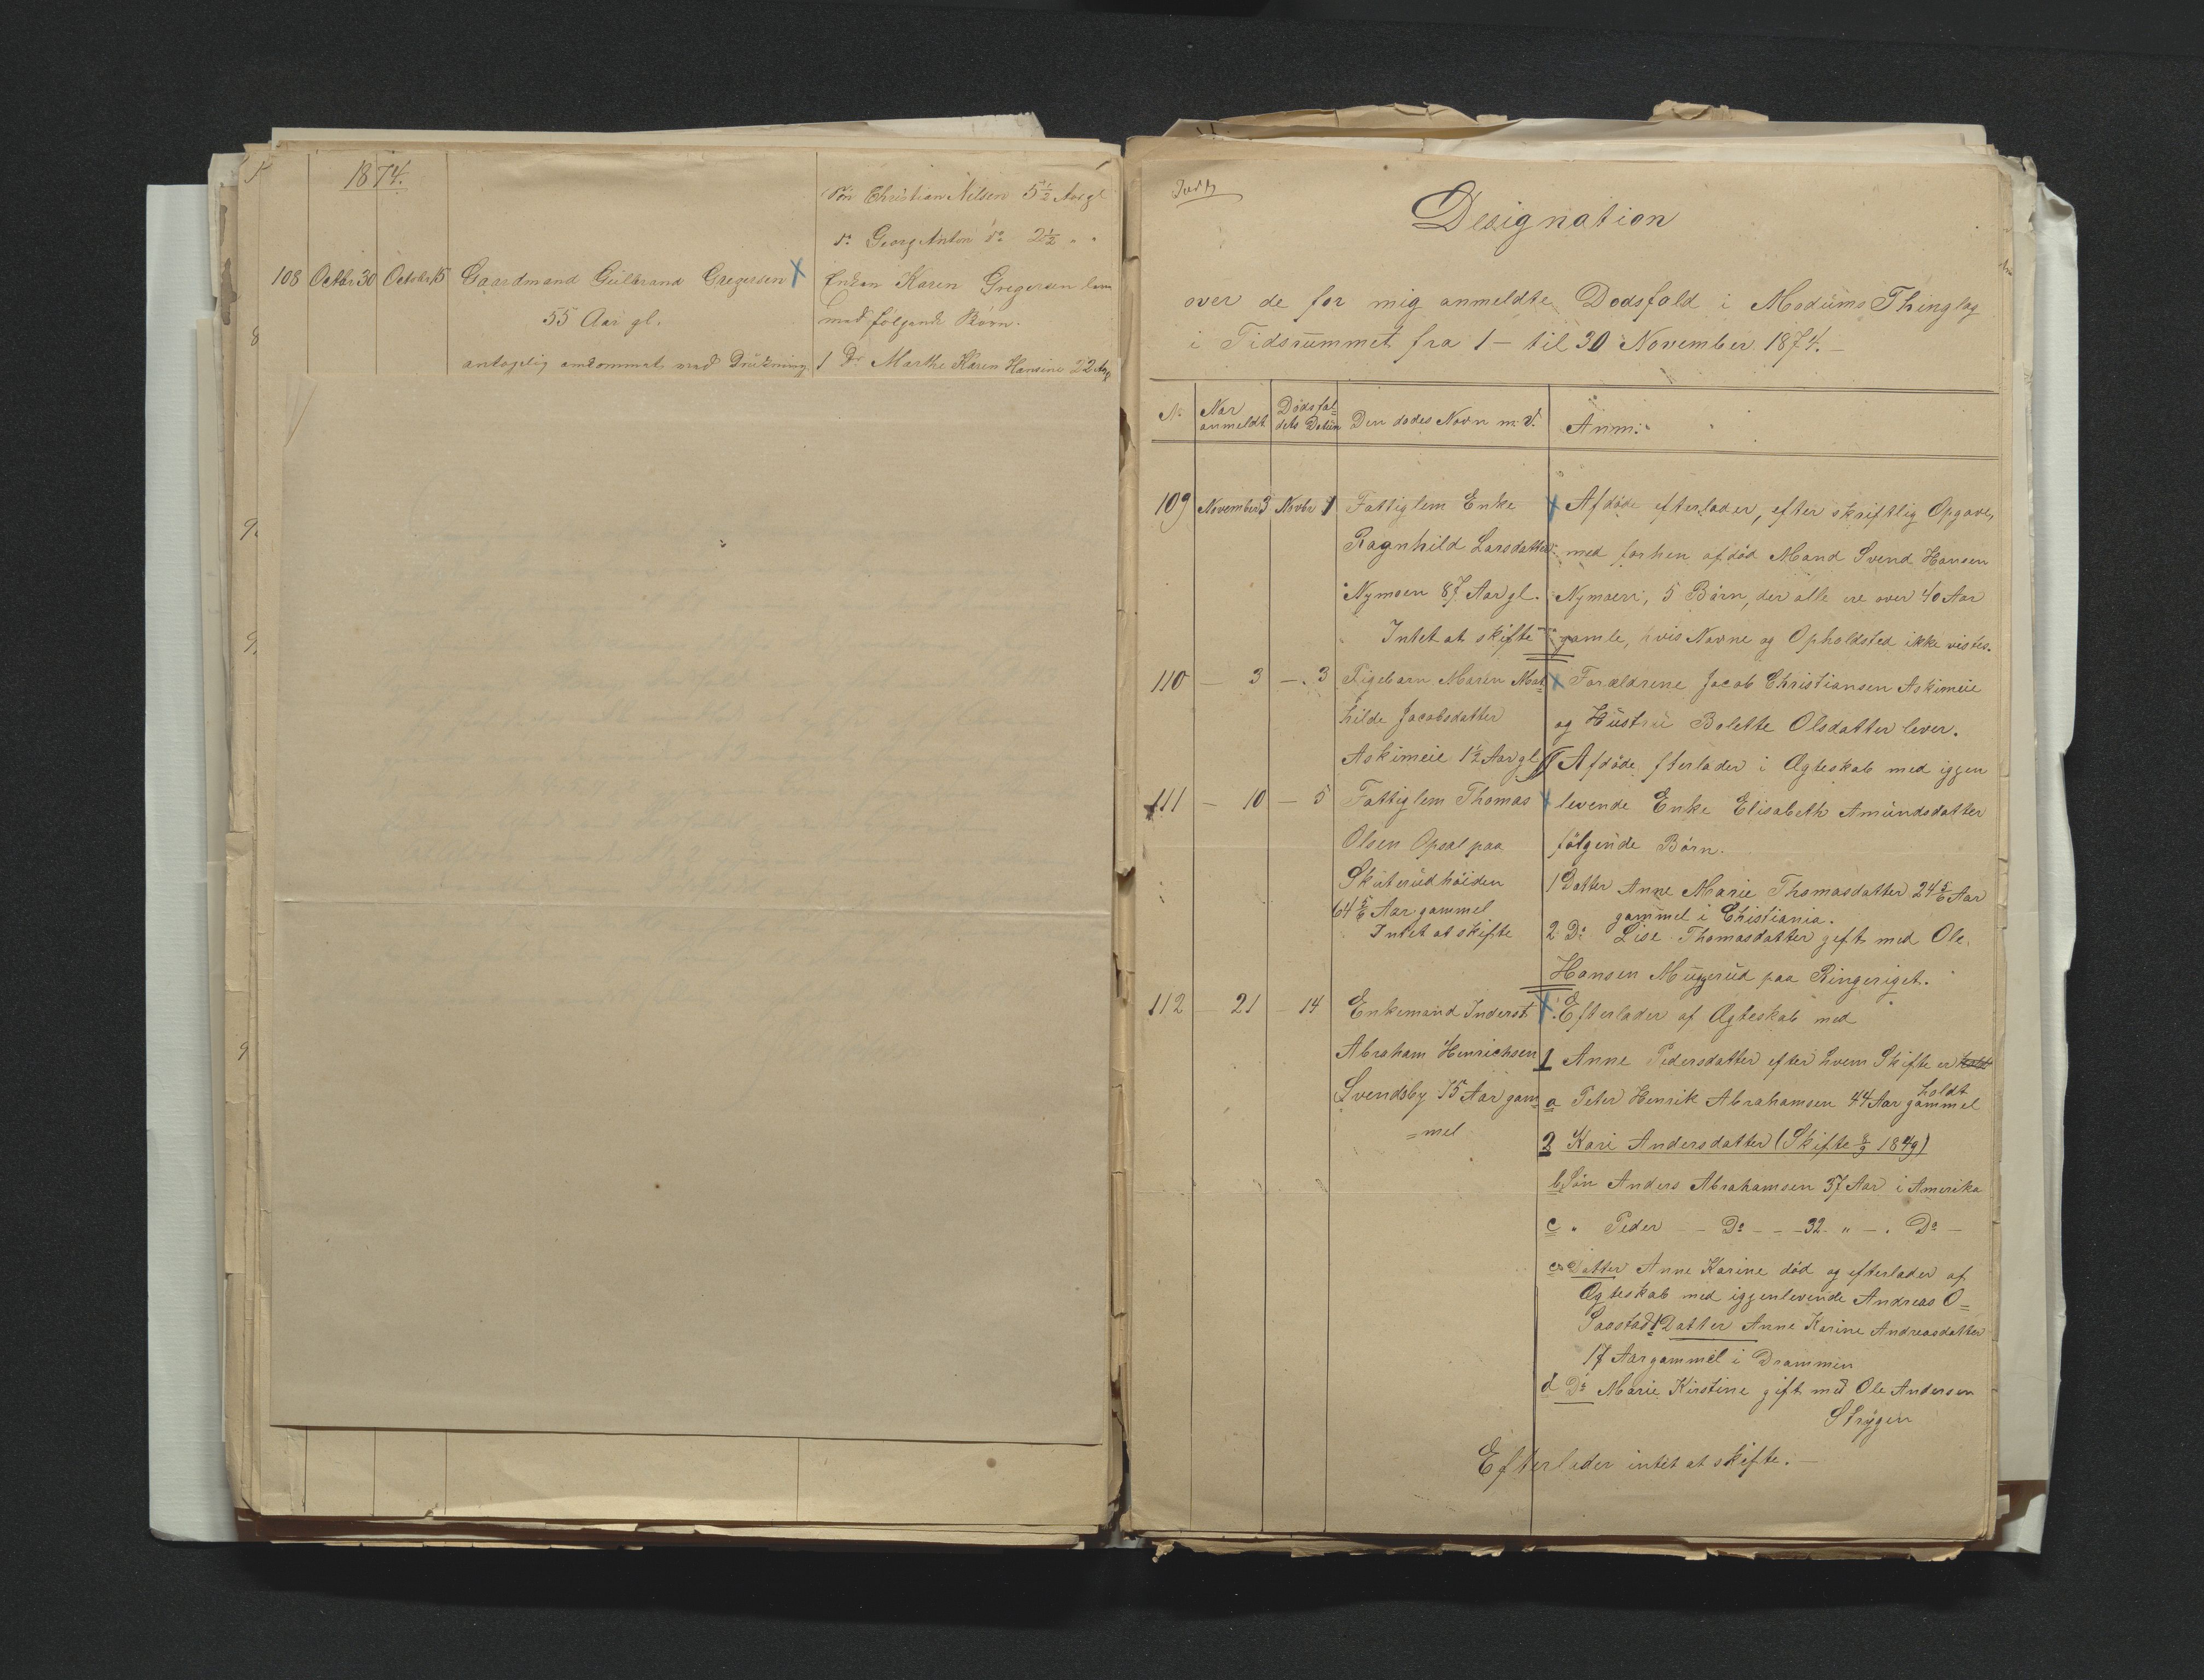 1874.
Søn Christian Nilsen 5½ Aar gl
do Georg Anton do 2½ " "
108 Octbr 30 October 15 Gaardmand Gulbrand Gregersen Enken Karen Gregersen
55 Aar gl. med følgende Børn.
antagelig omkommet ved Drukning 1 Dr Marthe Karen Hansine 22 Aar
Designation
over de for mig anmeldte Dødsfald i Modums Thinglag
i Tidsrummet fra 1 – til 30 November 1874. –
No Naar anmeldt Dødsfaldets Datum Den dødes Navn m. v. Anm:
109 November 3 Novbr 1 Fattiglem Enke Afdøde efterlader, efter skriftlig Opgave,
Ragnhild Larsdatter med forhen afdød Mand Svend Hansen
Nymoen 87 Aar gl. Nymoen, 5 Børn, der alle ere over 40 Aar
Intet at skifte gamle, hvis Navne og Opholdsted ikke vistes.
110 – 3 – 3 Pigebarn Maren Mat= Forældrene Jacob Christiansen Askimeie
hilde Jacobsdatter og Hustru Bolette Olsdatter lever.
Askimeie 1½ Aar gl Afdøde efterlader i Ægteskab med igjen
111 – 10 – 5 Fattiglem Thomas levende Enke Elisabeth Amundsdatter
Olsen Opsal paa følgende Børn.
Skuterudhøiden 1 Datter Anne Marie Thomasdatter 24 5/6 Aar
64 5/6 Aar gammel gammel i Christiania.
Intet at skifte 2 Do Lise Thomasdatter gift med Ole
Hansen Muggerud paa Ringeriget.
112 – 21 – 14 Enkemand Inderst Efterlader af Ægteskab med
Abraham Henrichsen 1 Anne Pedersdatter efter hvem Skifte er holdt
holdt
Svendsby 75 Aar gam a Peter Henrik Abrahamsen 44 Aar gammel
=mel 2 Kari Andersdatter (Skifte 8/9 1849)
b Søn Anders Abrahamsen 37 Aar i Amerika
c " Peder – Do – – – 32 " – . Do –
c Datter Anne Karine død og efterlader af
Ægteskab med igjenlevende Andreas O=
Datter Anne Karine Andreasdatter
17 Aar gammel i Drammen
d Do Marie Kirstine gift med Ole Andersen
Strygen
Efterlader intet at skifte. –